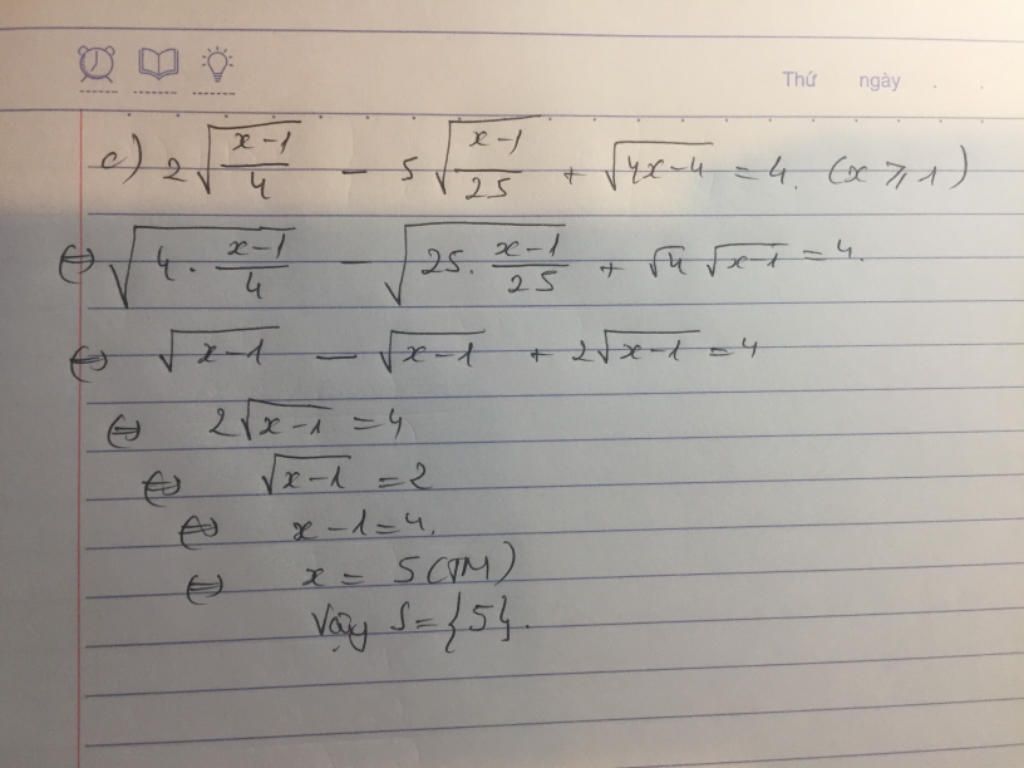 Thứ ngày . .
c) 2√((x-1)/4) - 5√((x-1)/25) + √(4x-4) = 4. (x ⩾ 1)
⇔ √(4 . (x-1)/4) - √(25 . (x-1)/25) + √4 √(x-1) = 4.
⇔ √(x-1) - √(x-1) + 2√(x-1) = 4
⇔ 2√(x-1) = 4
⇔ √(x-1) = 2
⇔ x - 1 = 4.
⇔ x = 5 (TM)
Vậy S = {5}.